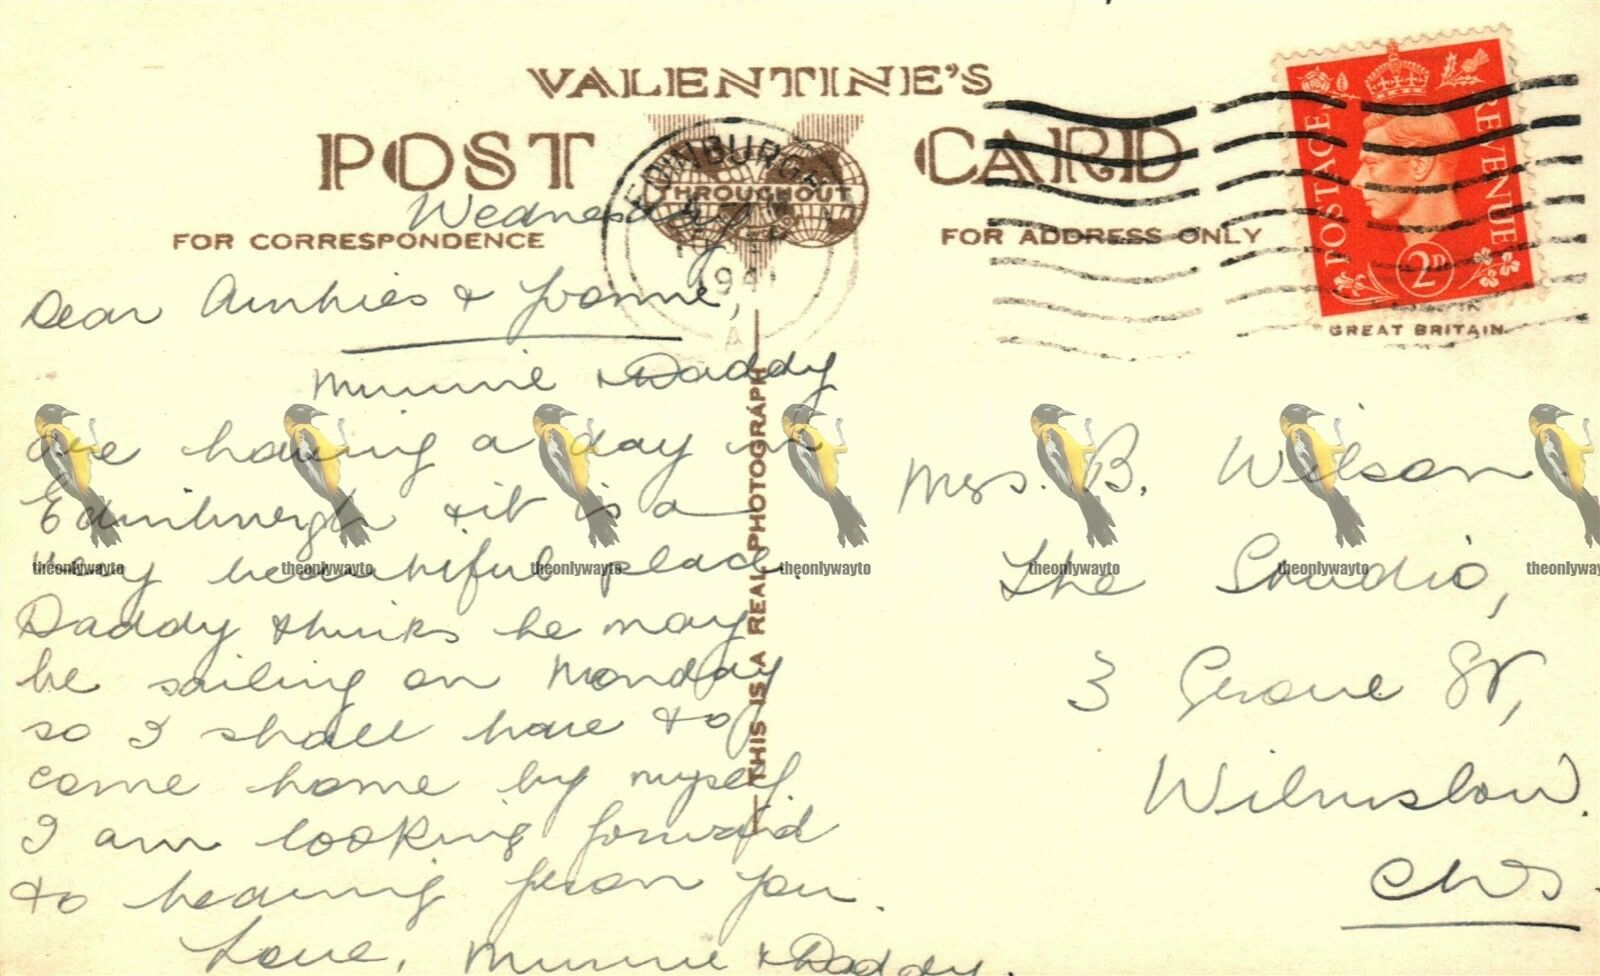 VALENTINE'S
POST CARD
EDINBURGH
THROUGHOUT
1941
A
FOR CORRESPONDENCE
FOR ADDRESS ONLY
POSTAGE REVENUE
2D
GREAT BRITAIN
THIS IS A REAL PHOTOGRAPH
Wednesday
Dear Aunties & Yvonne,
Mummie & Daddy
are having a day in
Edinburgh & it is a
very beautiful place.
Daddy thinks he may
be sailing on Monday
so I shall have to
come home by myself.
I am looking forward
to hearing from you.
Love, Mummie & Daddy.
Mrs. B. Wilson
The Studio,
3 Grove St,
Wilmslow.
Ches.
theonlywayto theonlywayto theonlywayto theonlywayto theonlywayto theonlywayto theonlyway